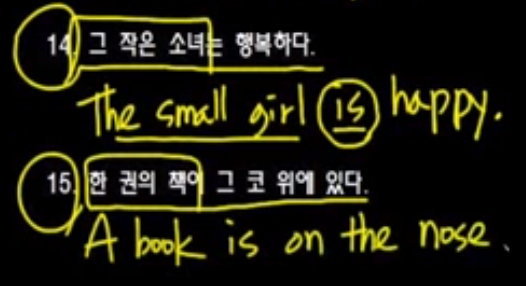 14. 그 작은 소녀는 행복하다.
The small girl is happy.
15. 한 권의 책이 그 코 위에 있다.
A book is on the nose.